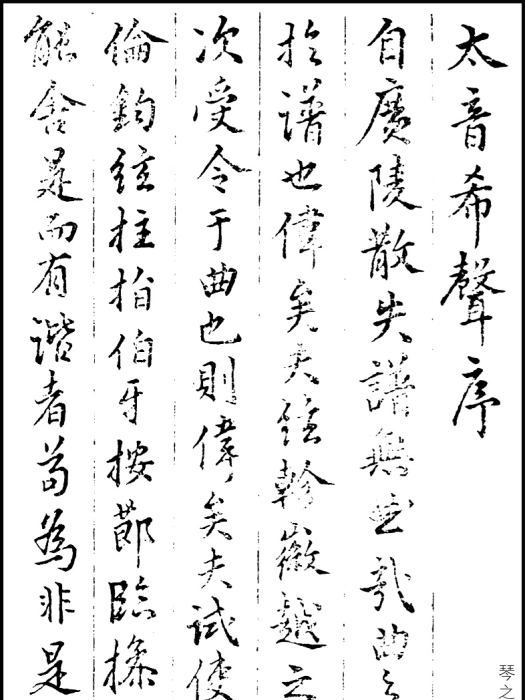 太音希聲序
自廣陵散失譜無哉曲之
於譜也偉矣夫絃軫徽越之
次受令于曲也則偉矣夫試使
倫鈞絃柱指伯牙按節臨操
能舍是而有諧者苟為非是
琴之